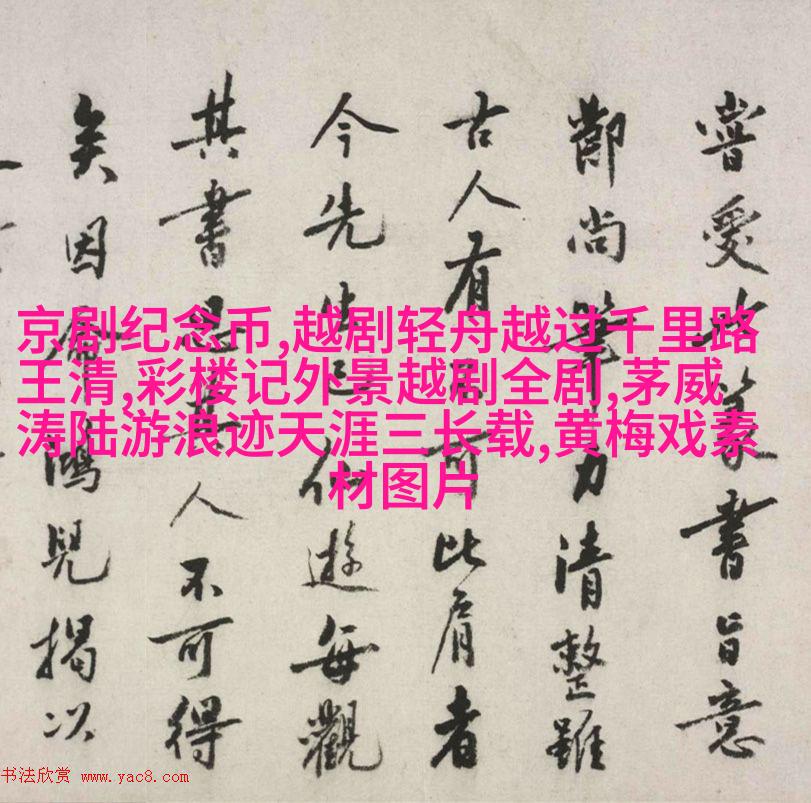 京剧纪念币,越剧轻舟越过千里路
王清,彩楼记外景越剧全剧,茅威
涛陆游浪迹天涯三长载,黄梅戏素
材图片
甞愛篆書旨意
尚筆力清整雖
古人有可比肩者
今先生已仙遊每觀
其書思其人不可得
矣因鴻兒揭以
书法欣赏 www.yac8.com